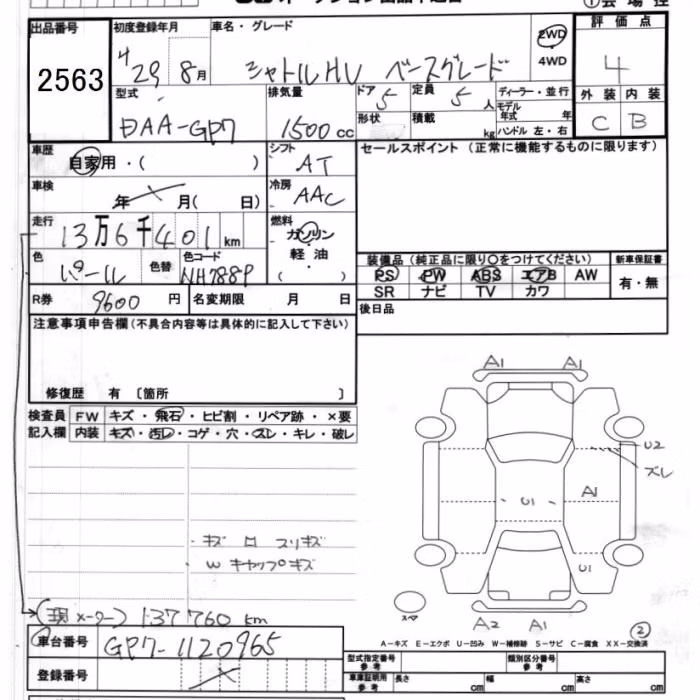 出品番号
2563
初度登録年月
H29年 8月
車名・グレード
シャトルHV ベースグレード
2WD
4WD
評価点
4
外装 内装
C B
型式
DAA-GP7
排気量
1500cc
ドア 5
定員 5人
形状
積載 kg
ディーラー・並行
モデル年式 年
ハンドル 左・右
車歴
自家用・( )
シフト
AT
車検
年 月( 日)
冷房
AAC
走行
13万6千401km
燃料
ガソリン・軽油( )
色
パール
色替
色コード
NH788P
R券 9600円
名変期限 月 日
セールスポイント (正常に機能するものに限ります)
装備品(純正品に限り〇をつけてください)
PS PW ABS エアB AW
SR ナビ TV カワ
新車保証書
有・無
後日品
注意事項申告欄(不具合内容等は具体的に記入して下さい)
修復歴 有 〔箇所 〕
検査員記入欄
FW キズ・飛石・ヒビ割・リペア跡・×要
内装 キズ・汚レ・コゲ・穴・スレ・キレ・破レ
・キズ ロ スリキズ
W キャップキズ
A1 A1
U2
ズレ
A1
U1
U1
スペア
A2 A1
(現メーター) 137760 km
車台番号
GP7-1120965
登録番号
②
A-キズ E-エクボ U-凹み W-補修跡 S-サビ C-腐食 XX-交換済
型式指定番号 参考
類別区分番号 参考
車庫証明用 参考
長さ cm
幅 cm
高さ cm